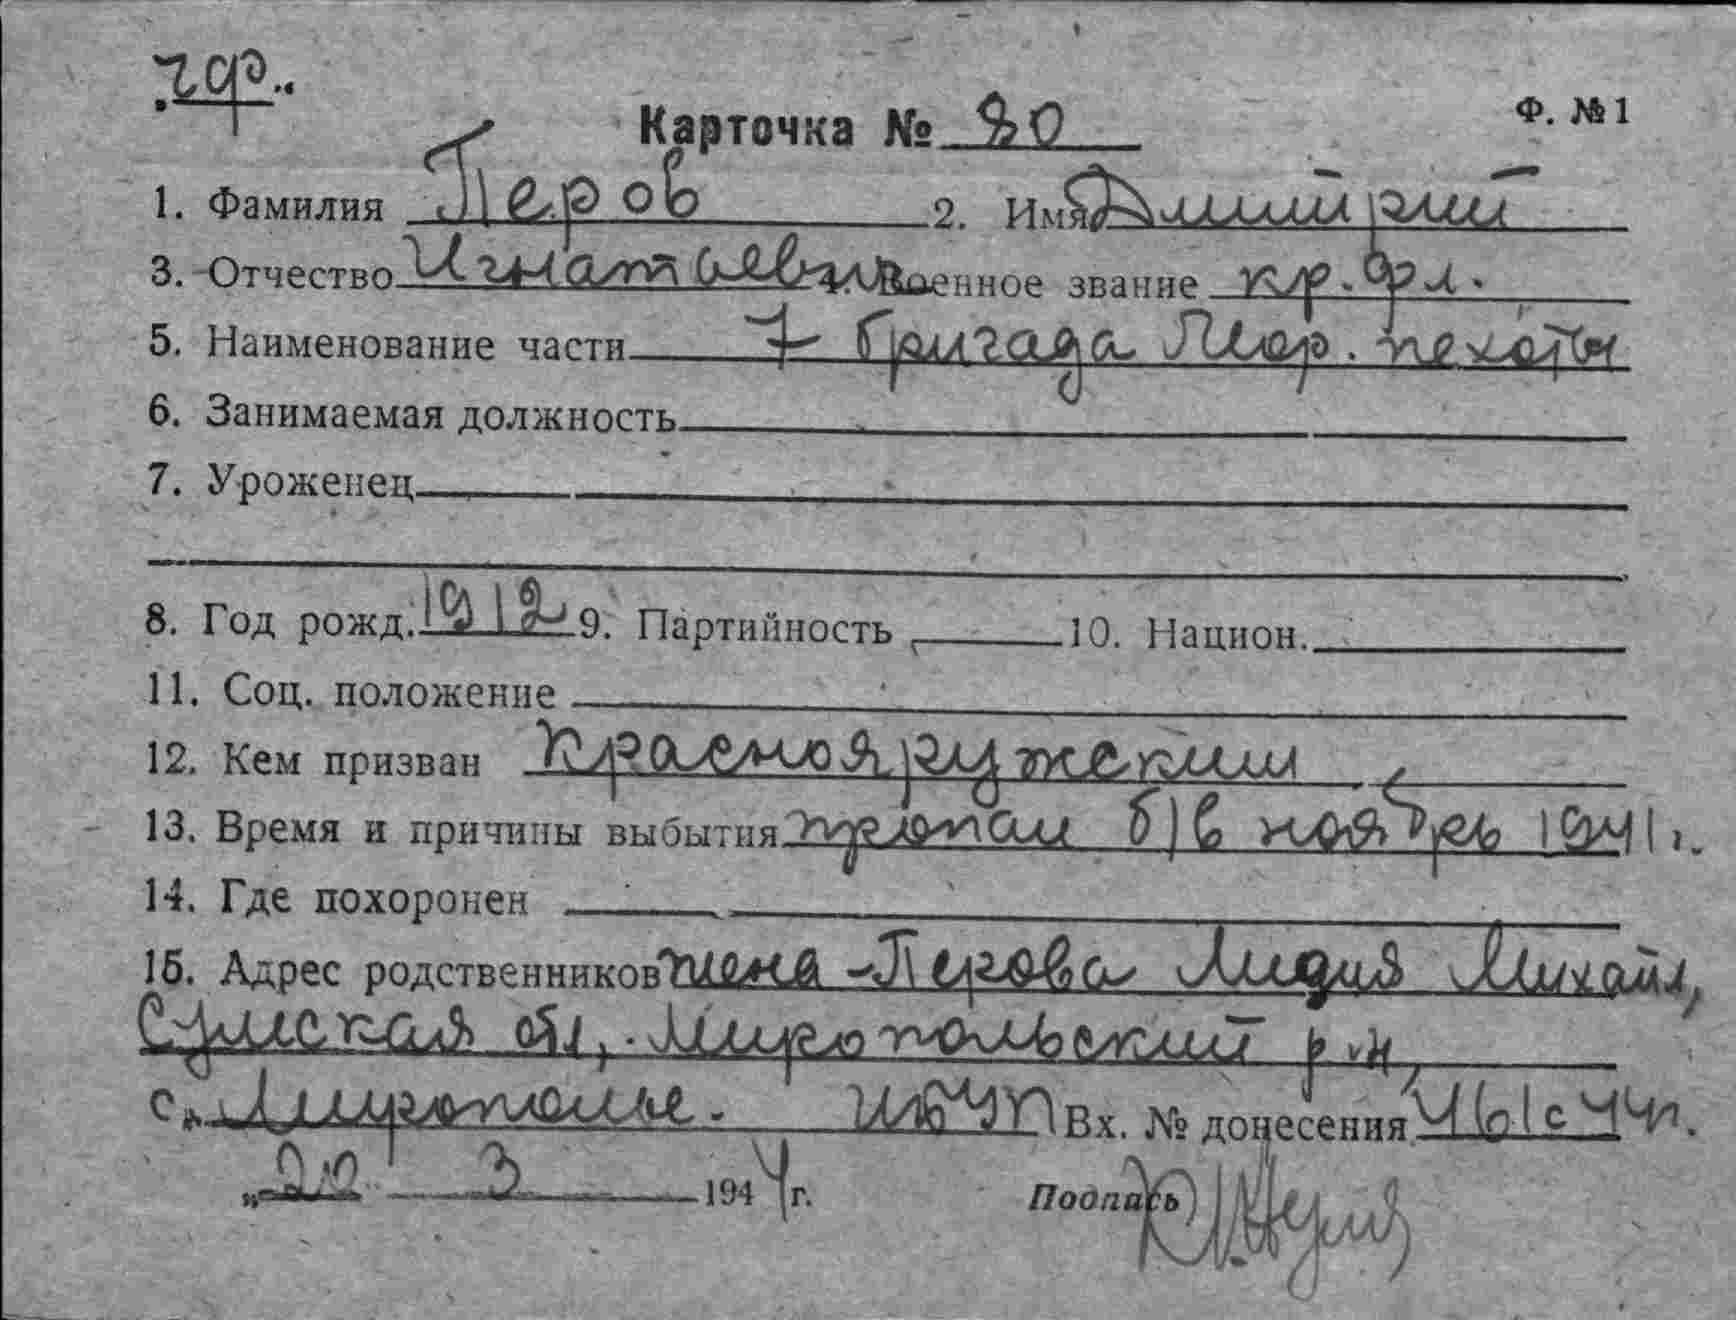 Карточка № 20
Ф. № 1
1. Фамилия Перов 2. Имя Дмитрий
3. Отчество Игнатьевич 4. Военное звание кр. фл.
5. Наименование части 7 бригада Мор. пехоты
6. Занимаемая должность
7. Уроженец
8. Год рожд. 1912 9. Партийность 10. Национ.
11. Соц. положение
12. Кем призван Краснояружским
13. Время и причины выбытия пропал б/в ноябрь 1941 г.
14. Где похоронен
15. Адрес родственников жена - Перова Лидия Михайл,
Сумская обл, Миропольский р-н,
с. Мирополье. Вх. № донесения 461с 44г.
"20" 3 1944 г. Подпись